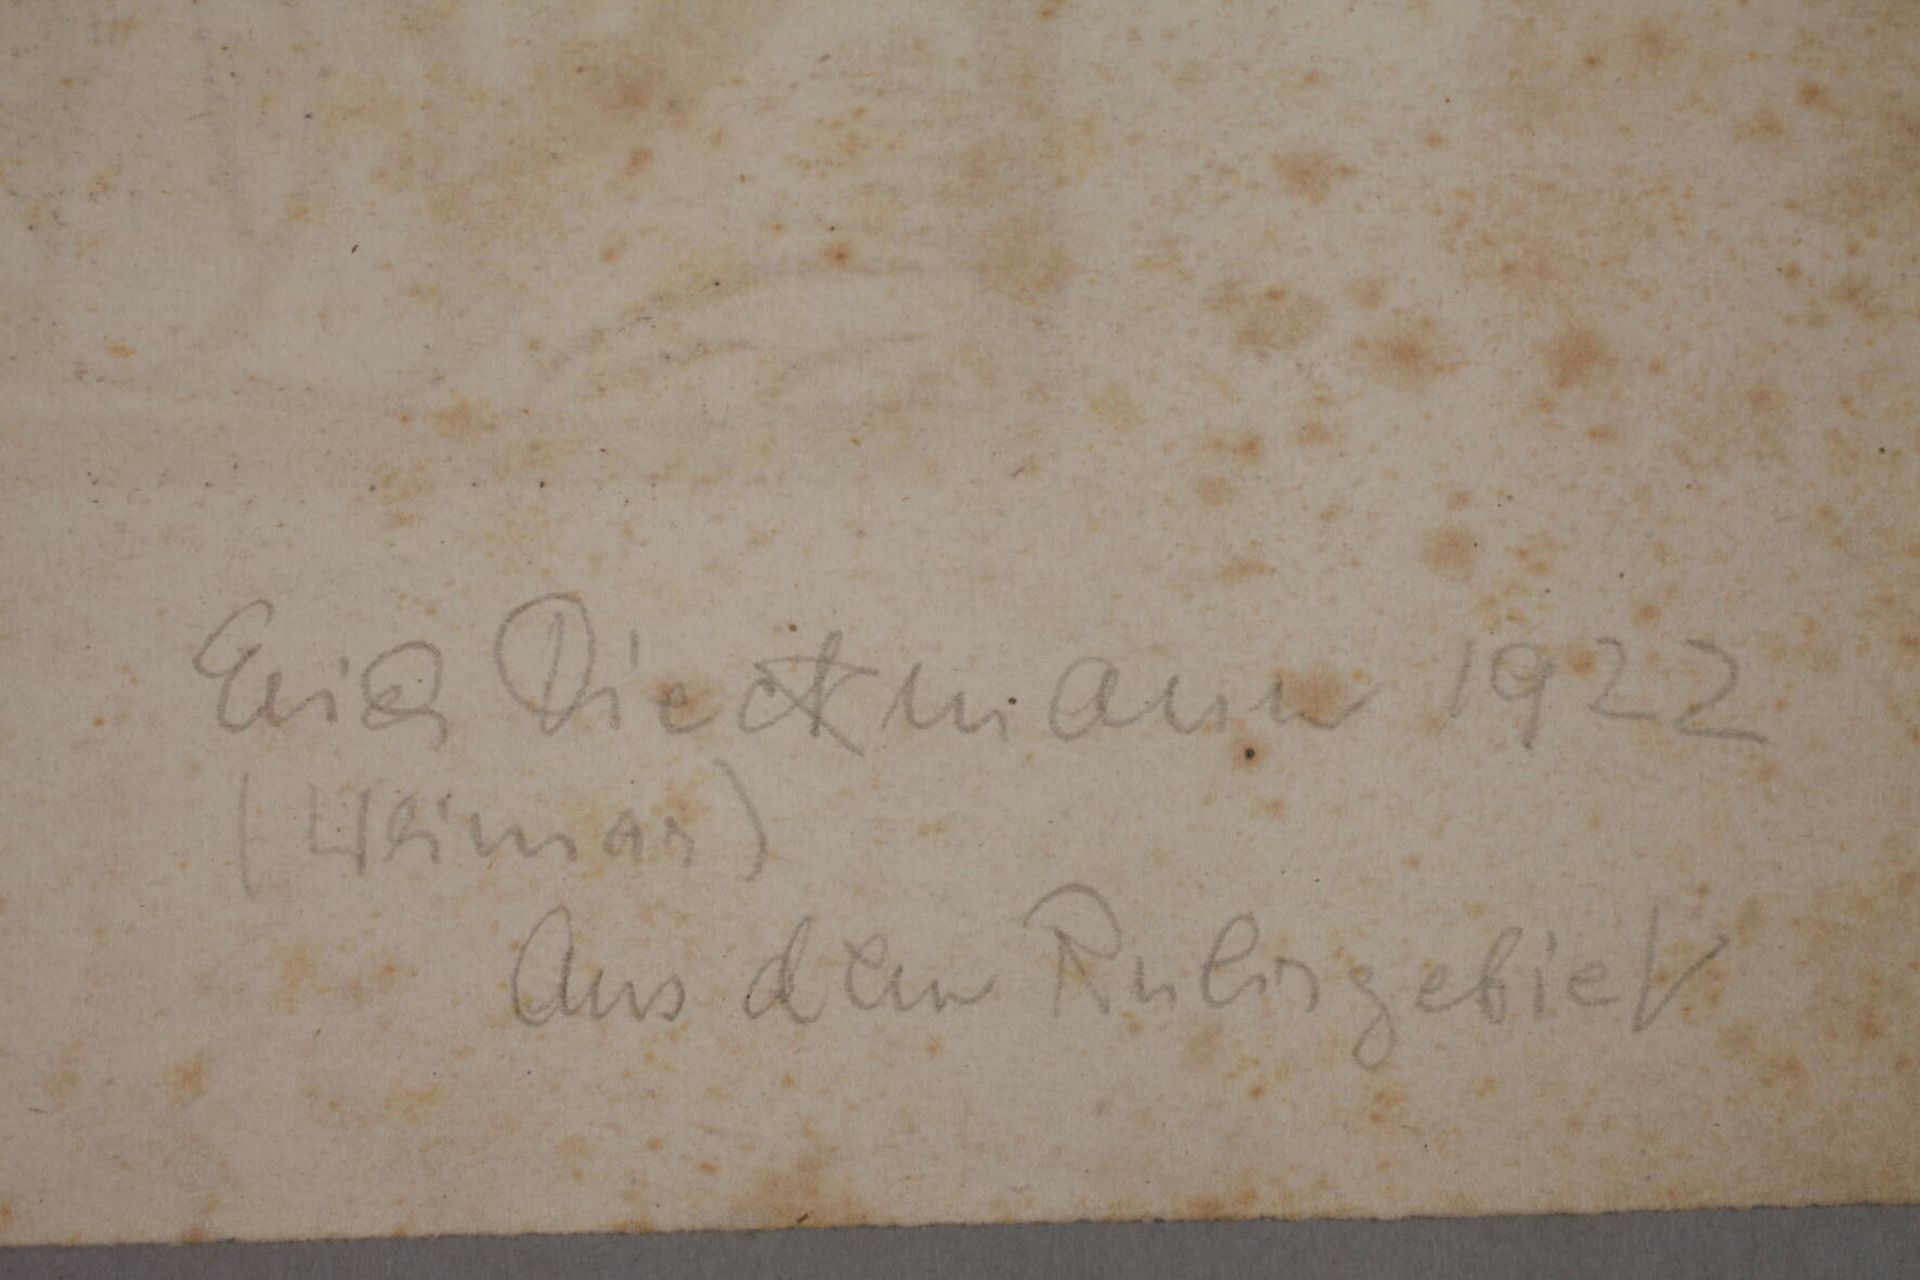 Erich Dieckmann 1922
(Weimar)
Aus dem Ruhrgebiet